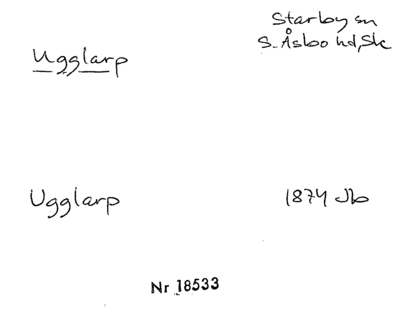 Ugglarp
Starby sn
S. Åsbo hd, Sk
Ugglarp
1874 Jb
Nr 18533